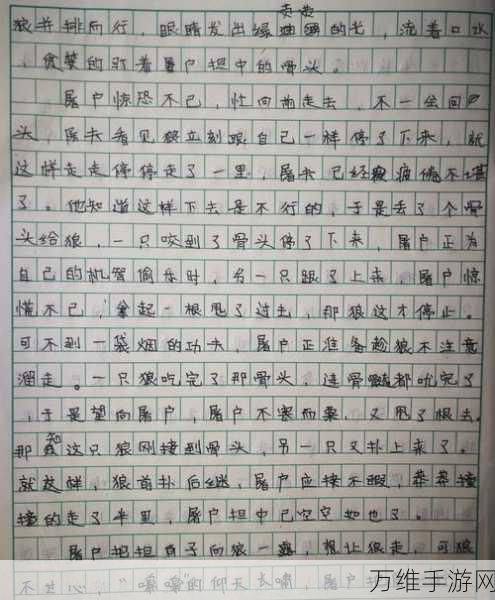 贪婪
狼并排而行，眼睛发出绿油油的光，流着口水
，贪婪的盯着屠户担中的骨头。
屠户惊恐不已，忙向前走去，不一会回
头，屠夫看见狼立刻跟自己一样停了下来，就
这样走走停停走了一里，屠夫已经疲倦不堪
了。他知道这样下去是不行的，于是丢了个骨
头给狼，一只咬到了骨头停了下来，屠户正为
自己的机智偷乐时，另一只跟了上来，屠户惊
慌不已，拿起一根甩了过去，那狼这才停止。
可不到一袋烟的功夫，屠户正准备趁狼不注意
溜走。一只狼吃完了那骨头，连骨髓都吮完了
，于是望向屠户，屠户不寒而栗，又甩了根去。
那知这只狼刚接到骨头，另一只又扑上来了。
就这样，狼首扑后继，屠户应接不暇，莽莽撞
撞的走了半里，屠户担中已空空如也了。
屠户把担负子向狼一露，想让狼走，可狼
不甘心，“嗥嗥”的仰天长啸，屠户
万维手游网